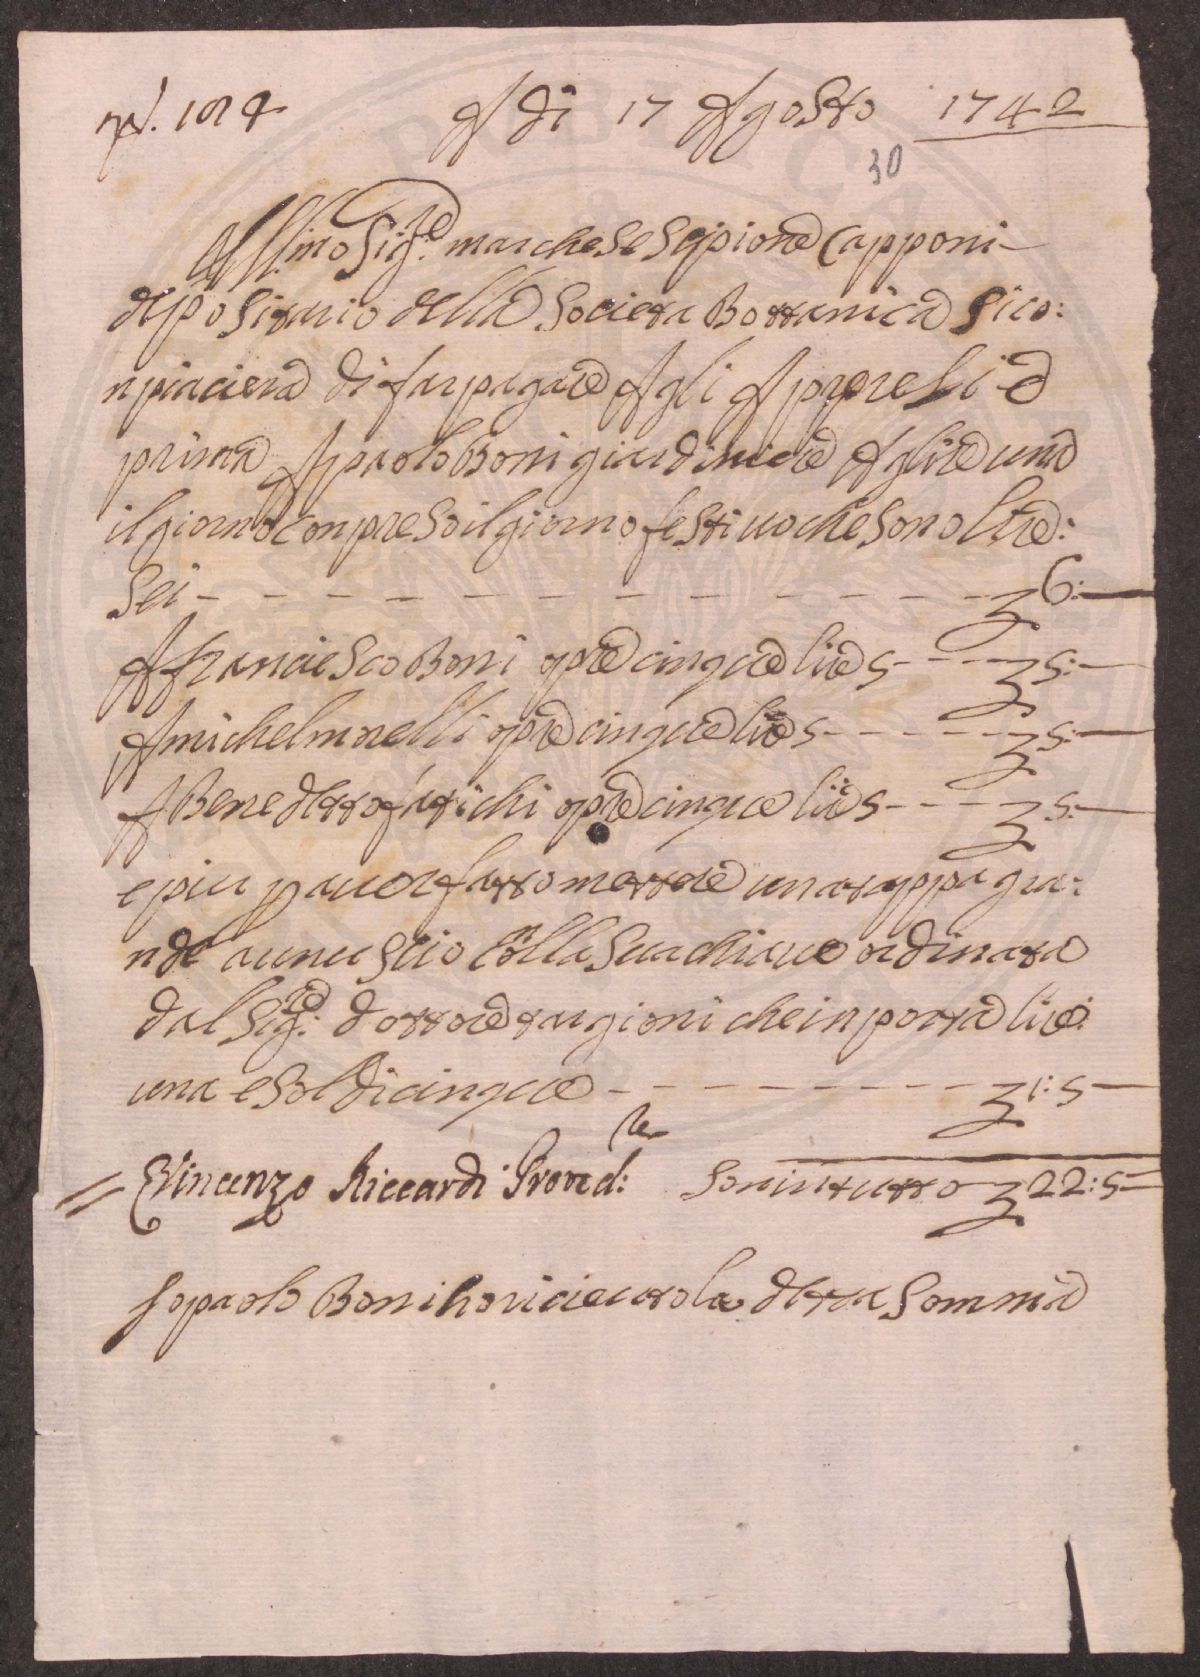 A di 17 Agosto 1742
30
Ill.mo Sig.re marchese Scipione Capponi
depositario della Societa Bottanica Si co:
npiaciera di far pagare Agli Appresi e
prima A paolo Boni giardiniere A lire una
il giorno conpreso il giorno festiuo che sono lire:
Sei - - - - - - - 6:—
A Franciesco Boni opre cinque lire 5 - - - 5:—
A michel morelli opre cinque lire 5 - - - - 5:—
A Benedetto opre cinque lire 5 - - - 5:—
e piu p auer fatto mettere una toppa gra:
nde a un uscio colla Sua chiaue ordinata
dal Sig.re dottore targioni che inporta lire:
una e soldi cinque - - - - - - 1:5 —
Vincenzo Riccardi Proved:re Son in tutto 22:5—
Io paolo Boni ho riceuto la detta Somma